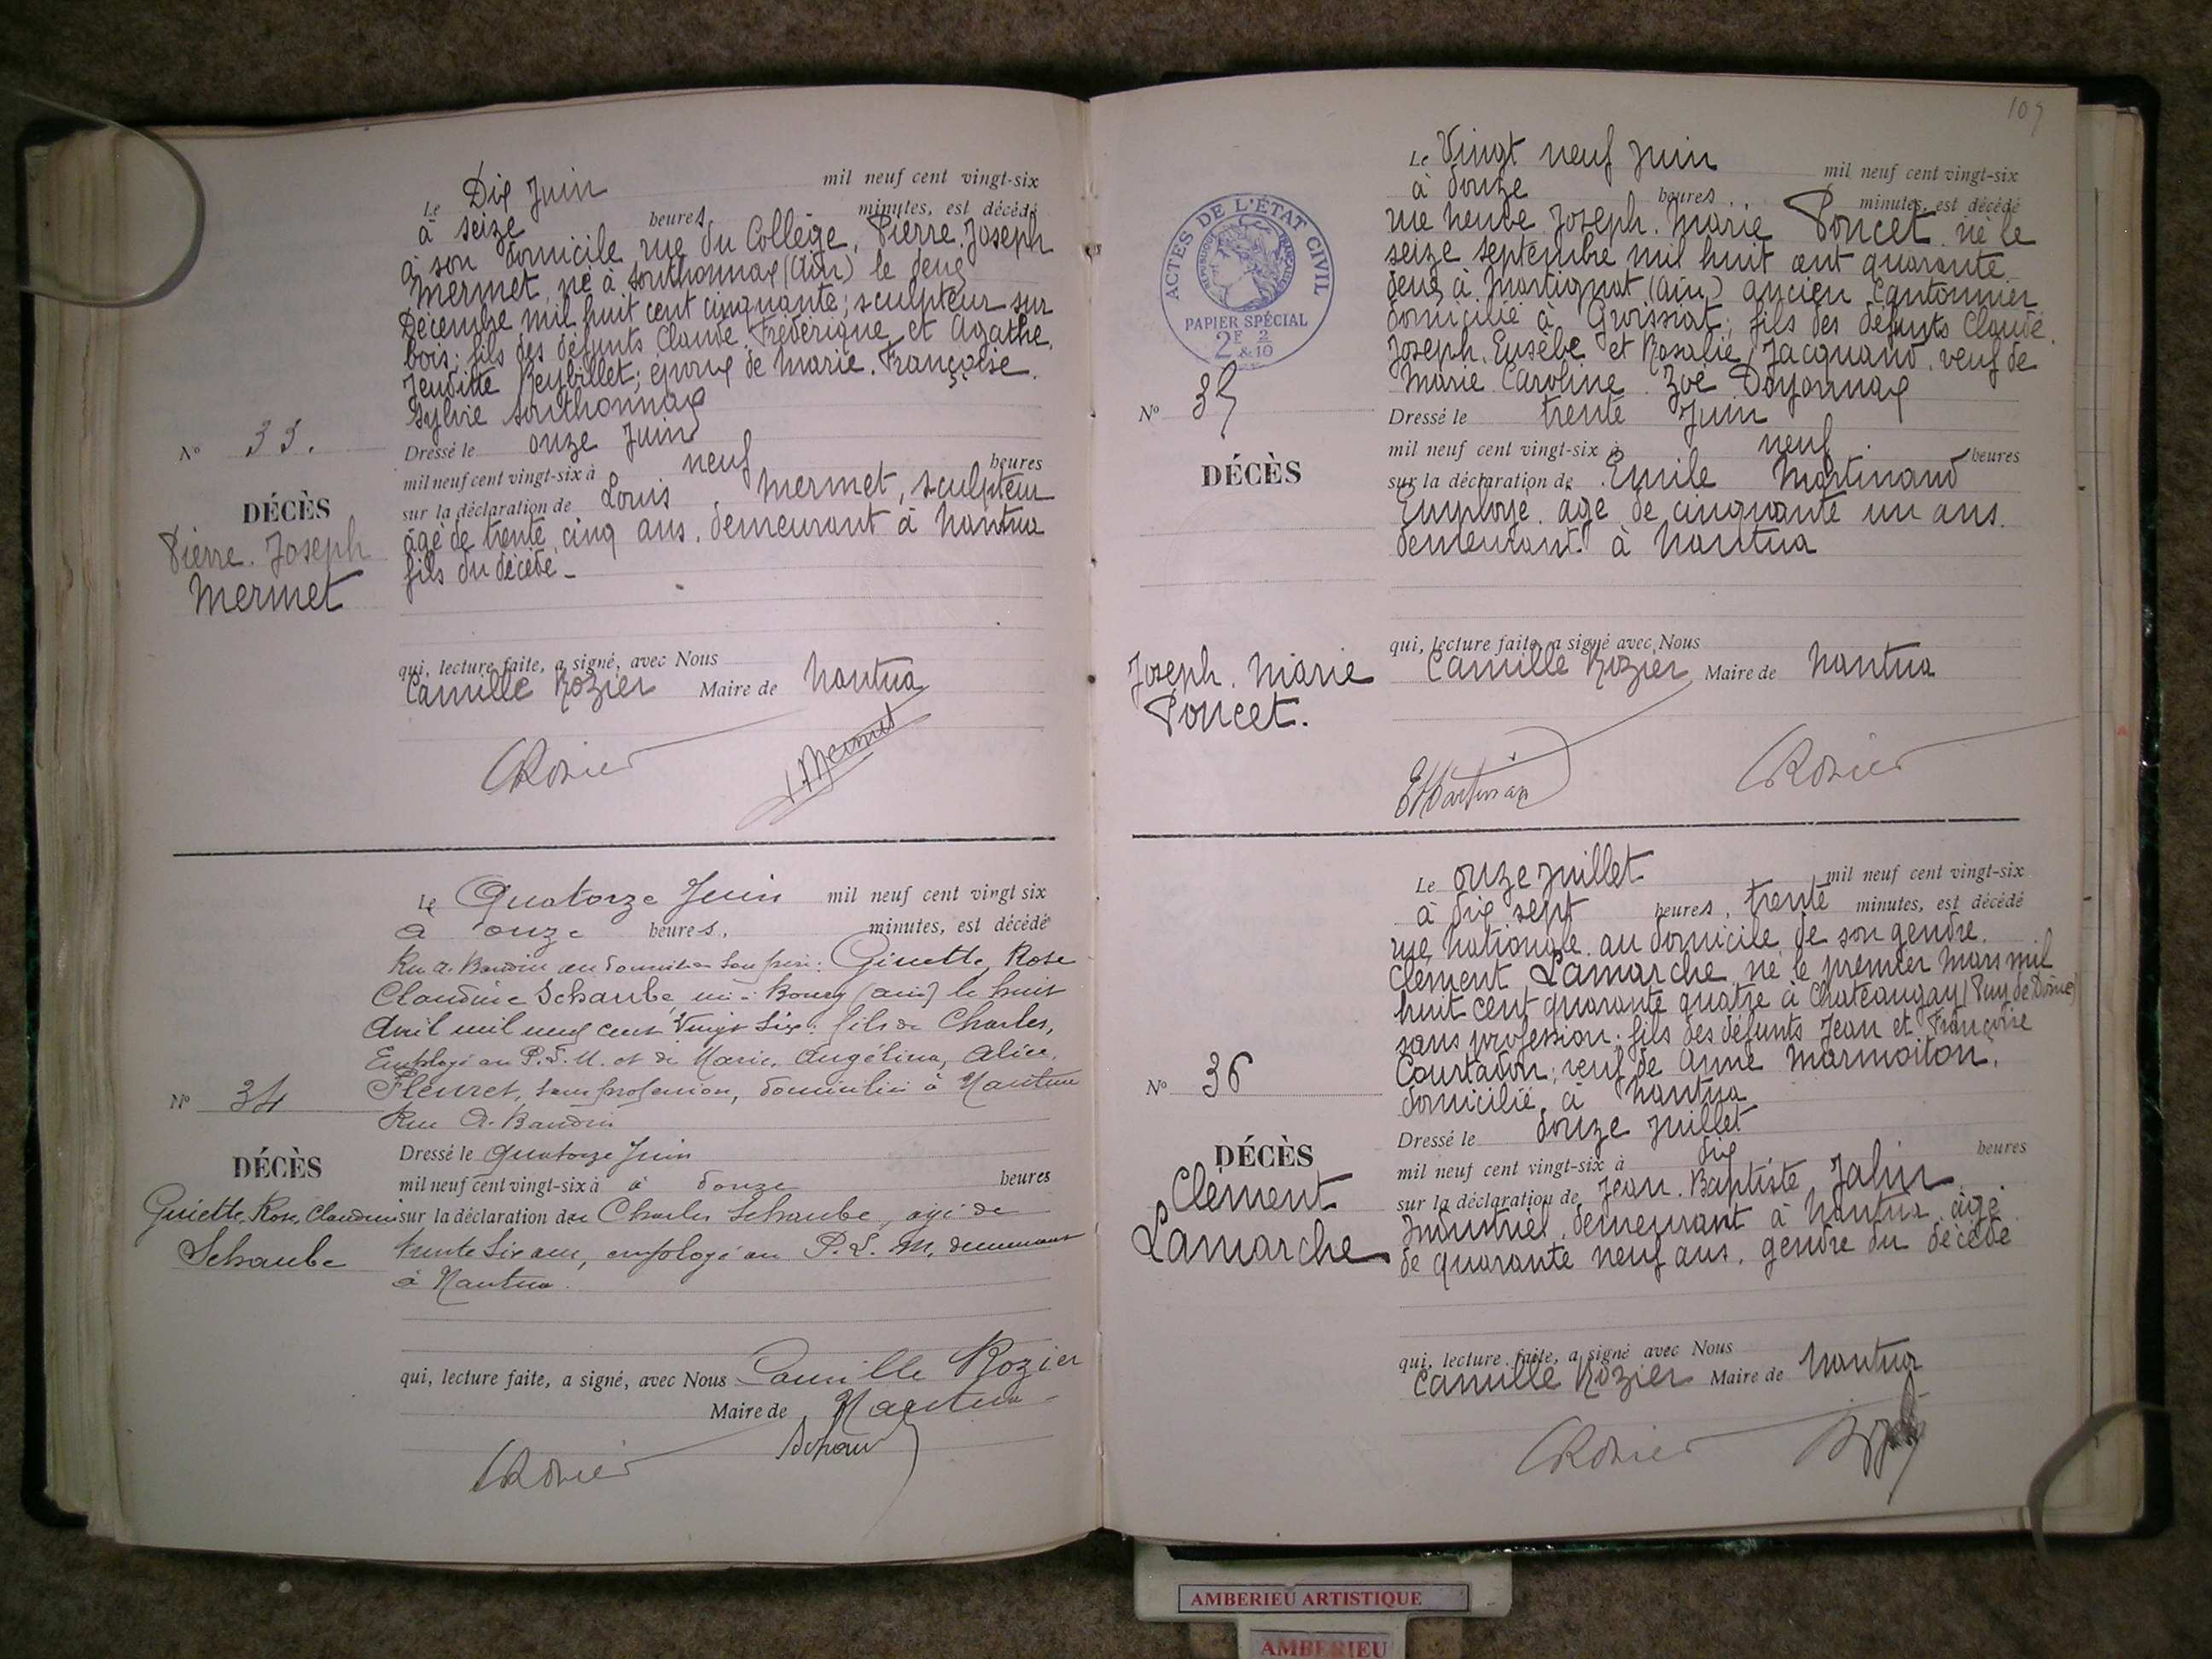 Le Dix Juin mil neuf cent vingt-six
à seize heures, minutes, est décédé
à son domicile rue du Collège, Pierre. Joseph
Mermet, né à Sonthonnax (Ain) le deux
Décembre mil huit cent cinquante; sculpteur sur
bois; fils des défunts Claude. Fréderique et Agathe.
Jeuditte Reybillet; époux de Marie. Françoise.
Sylvie Sonthonnax
Nº 33.
Dressé le onze Juin
mil neuf cent vingt-six à neuf heures
sur la déclaration de Louis Mermet, sculpteur
âgé de trente cinq ans, demeurant à Nantua
fils du décédé_
DÉCÈS
Pierre. Joseph
Mermet
qui, lecture faite, a signé, avec Nous
Camille Rozier Maire de Nantua
CRozier
L Mermet
Le Quatorze Juin mil neuf cent vingt six
à onze heures, minutes, est décédé
Rue A. Baudin au domicile de son père: Ginette, Rose
Claudine Schaube, née à Bourg (Ain) le huit
Avril mil neuf cent vingt six; fils de Charles,
Employé au P.L.M. et de Marie, Angélina, Alice,
Fleuret, sans profession, domiciliés à Nantua
Rue A. Baudin
Nº 34
DÉCÈS
Ginette, Rose, Claudine
Schaube
Dressé le quatorze Juin
mil neuf cent vingt-six à à douze heures
sur la déclaration de Charles Schaube, âgé de
trente six ans, employé au P. L. M. demeurant
à Nantua.
qui, lecture faite, a signé, avec Nous Camille Rozier
Maire de Nantua
CRozier
Schaub
109
Le Vingt neuf Juin mil neuf cent vingt-six
à douze heures, minutes, est décédé
rue neuve Joseph. Marie Poncet né le
seize septembre mil huit cent quarante
deux à Martignat (Ain) ancien Cantonnier
domicilié à Groissiat; fils des défunts Claude.
Joseph. Eusèbe et Rosalie Jacquand, veuf de
Marie Caroline Zoé Doyonnax
ACTES DE L'ÉTAT CIVIL
RÉPUBLIQUE FRANÇAISE
PAPIER SPÉCIAL
2F & 2/10
Nº 35
DÉCÈS
Joseph. Marie
Poncet.
Dressé le trente Juin
mil neuf cent vingt-six à neuf heures
sur la déclaration de Emile Martinand
Employé âgé de cinquante un ans.
demeurant à Nantua
qui, lecture faite, a signé avec Nous
Camille Rozier Maire de Nantua
E Martinan
CRozier
Le onze juillet mil neuf cent vingt-six
à dix sept heures, trente minutes, est décédé
rue Nationale au domicile de son gendre.
Clément Lamarche né le premier Mars mil
huit cent quarante quatre à Chateaugay (Puy de Dôme)
sans profession; fils des défunts Jean et Françoise
Courtadon; veuf de Anne Marmoiton.
domicilié à Nantua
Nº 36
DÉCÈS
Clément
Lamarche
Dressé le douze Juillet
mil neuf cent vingt-six à dix heures
sur la déclaration de Jean. Baptiste Jalin
Industriel, demeurant à Nantua âgé
de quarante neuf ans, gendre du décédé
qui, lecture faite, a signé avec Nous
Camille Rozier Maire de Nantua
CRozier
AMBERIEU ARTISTIQUE
AMBERIEU